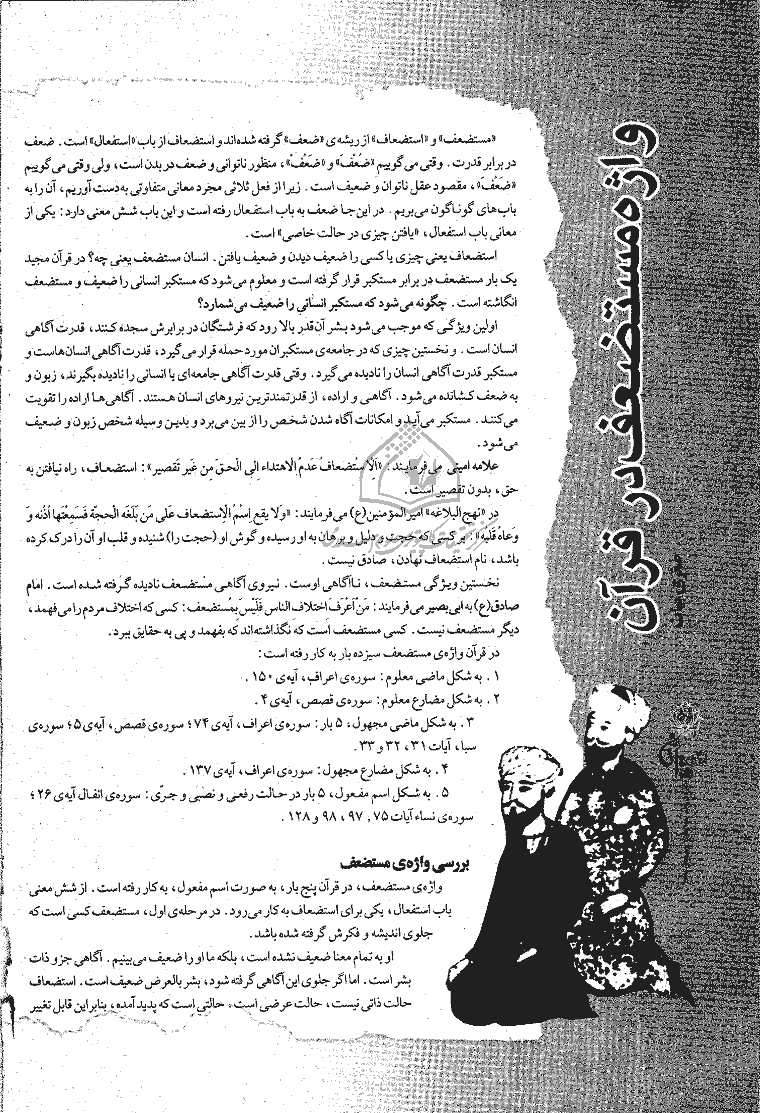 واژه مستضعف در قرآن
«مستضعف» و «استضعاف» از ریشه‌ی «ضعف» گرفته شده‌اند و استضعاف از باب «استفعال» است. ضعف
در برابر قدرت. وقتی می‌گوییم «ضُعْف» و «ضَعُفَ»، منظور ناتوانی و ضعف در بدن است، ولی وقتی می‌گوییم
«ضَعُفَ»، مقصود عقل ناتوان و ضعیف است. زیرا از فعل ثلاثی مجرد معانی متفاوتی به‌دست آوریم، آن را به
باب‌های گوناگون می‌بریم. در این‌جا ضعف به باب استفعال رفته است و این باب شش معنی دارد: یکی از
معانی باب استفعال، «یافتن چیزی در حالت خاصی» است.
استضعاف یعنی چیزی یا کسی را ضعیف دیدن و ضعیف یافتن. انسان مستضعف یعنی چه؟ در قرآن مجید
یک بار مستضعف در برابر مستکبر قرار گرفته است و معلوم می‌شود که مستکبر انسانی را ضعیف و مستضعف
انگاشته است. چگونه می‌شود که مستکبر انسانی را ضعیف می‌شمارد؟
اولین ویژگی که موجب می‌شود بشر آن‌قدر بالا رود که فرشتگان در برابرش سجده کنند، قدرت آگاهی
انسان است. و نخستین چیزی که در جامعه‌ی مستکبران مورد حمله قرار می‌گیرد، قدرت آگاهی انسان‌هاست و
مستکبر قدرت آگاهی انسان را نادیده می‌گیرد. وقتی قدرت آگاهی جامعه‌ای یا انسانی را نادیده بگیرند، زبون و
به ضعف کشانده می‌شود. آگاهی و اراده، از قدرتمندترین نیروهای انسان هستند. آگاهی‌ها اراده را تقویت
می‌کنند. مستکبر می‌آید و امکانات آگاه شدن شخص را از بین می‌برد و بدین وسیله شخص زبون و ضعیف
می‌شود.
علامه امینی می‌فرمایند: «اَلِاسْتضعافُ عَدمُ الاهتداء اِلی الحقّ مِن غَیر تَقصیر»: استضعاف، راه نیافتن به
حق، بدون تقصیر است.
در «نهج البلاغه» امیرالمؤمنین(ع) می‌فرمایند: «وَلا یقع اِسْمُ الاِستضعاف عَلی مَن بَلغَته الحجّة فَسمعَتْها اُذنه وَ
وعاهُ قَلبُه»: بر کسی که حجت و دلیل و برهان به او رسیده و گوش او (حجت را) شنیده و قلب او آن را درک کرده
باشد، نام استضعاف نهادن، صادق نیست.
نخستین ویژگی مستضعف، ناآگاهی اوست. نیروی آگاهی مستضعف نادیده گرفته شده است. امام
صادق(ع) به ابی‌بصیر می‌فرمایند: مَنْ اَعْرَفَ اختلافَ الناس فَلَیْسَ بِمُستضعف: کسی که اختلاف مردم را می‌فهمد،
دیگر مستضعف نیست. کسی مستضعف است که نگذاشته‌اند که بفهمد و پی به حقایق ببرد.
در قرآن واژه‌ی مستضعف سیزده بار به کار رفته است:
۱. به شکل ماضی معلوم: سوره‌ی اعراف، آیه‌ی ۱۵۰.
۲. به شکل مضارع معلوم: سوره‌ی قصص، آیه‌ی ۴.
۳. به شکل ماضی مجهول، ۵ بار: سوره‌ی اعراف، آیه‌ی ۷۴؛ سوره‌ی قصص، آیه‌ی ۵؛ سوره‌ی
سبا، آیات ۳۱، ۳۲ و ۳۳.
۴. به شکل مضارع مجهول: سوره‌ی اعراف، آیه‌ی ۱۳۷.
۵. به شکل اسم مفعول، ۵ بار در حالت رفعی و نصبی و جرّی: سوره‌ی انفال آیه‌ی ۲۶؛
سوره‌ی نساء آیات ۷۵, ۹۷، ۹۸ و ۱۲۸.
بررسی واژه‌ی مستضعف
واژه‌ی مستضعف، در قرآن پنج بار، به صورت اسم مفعول، به کار رفته است. از شش معنی
باب استفعال، یکی برای استضعاف به کار می‌رود. در مرحله‌ی اول، مستضعف کسی است که
جلوی اندیشه و فکرش گرفته شده باشد.
او به تمام معنا ضعیف نشده است، بلکه ما او را ضعیف می‌بینیم. آگاهی جزو ذات
بشر است. اما اگر جلوی این آگاهی گرفته شود، بشر بالعرض ضعیف است. استضعاف
حالت ذاتی نیست، حالت عرضی است. حالتی است که پدید آمده، بنابراین قابل تغییر